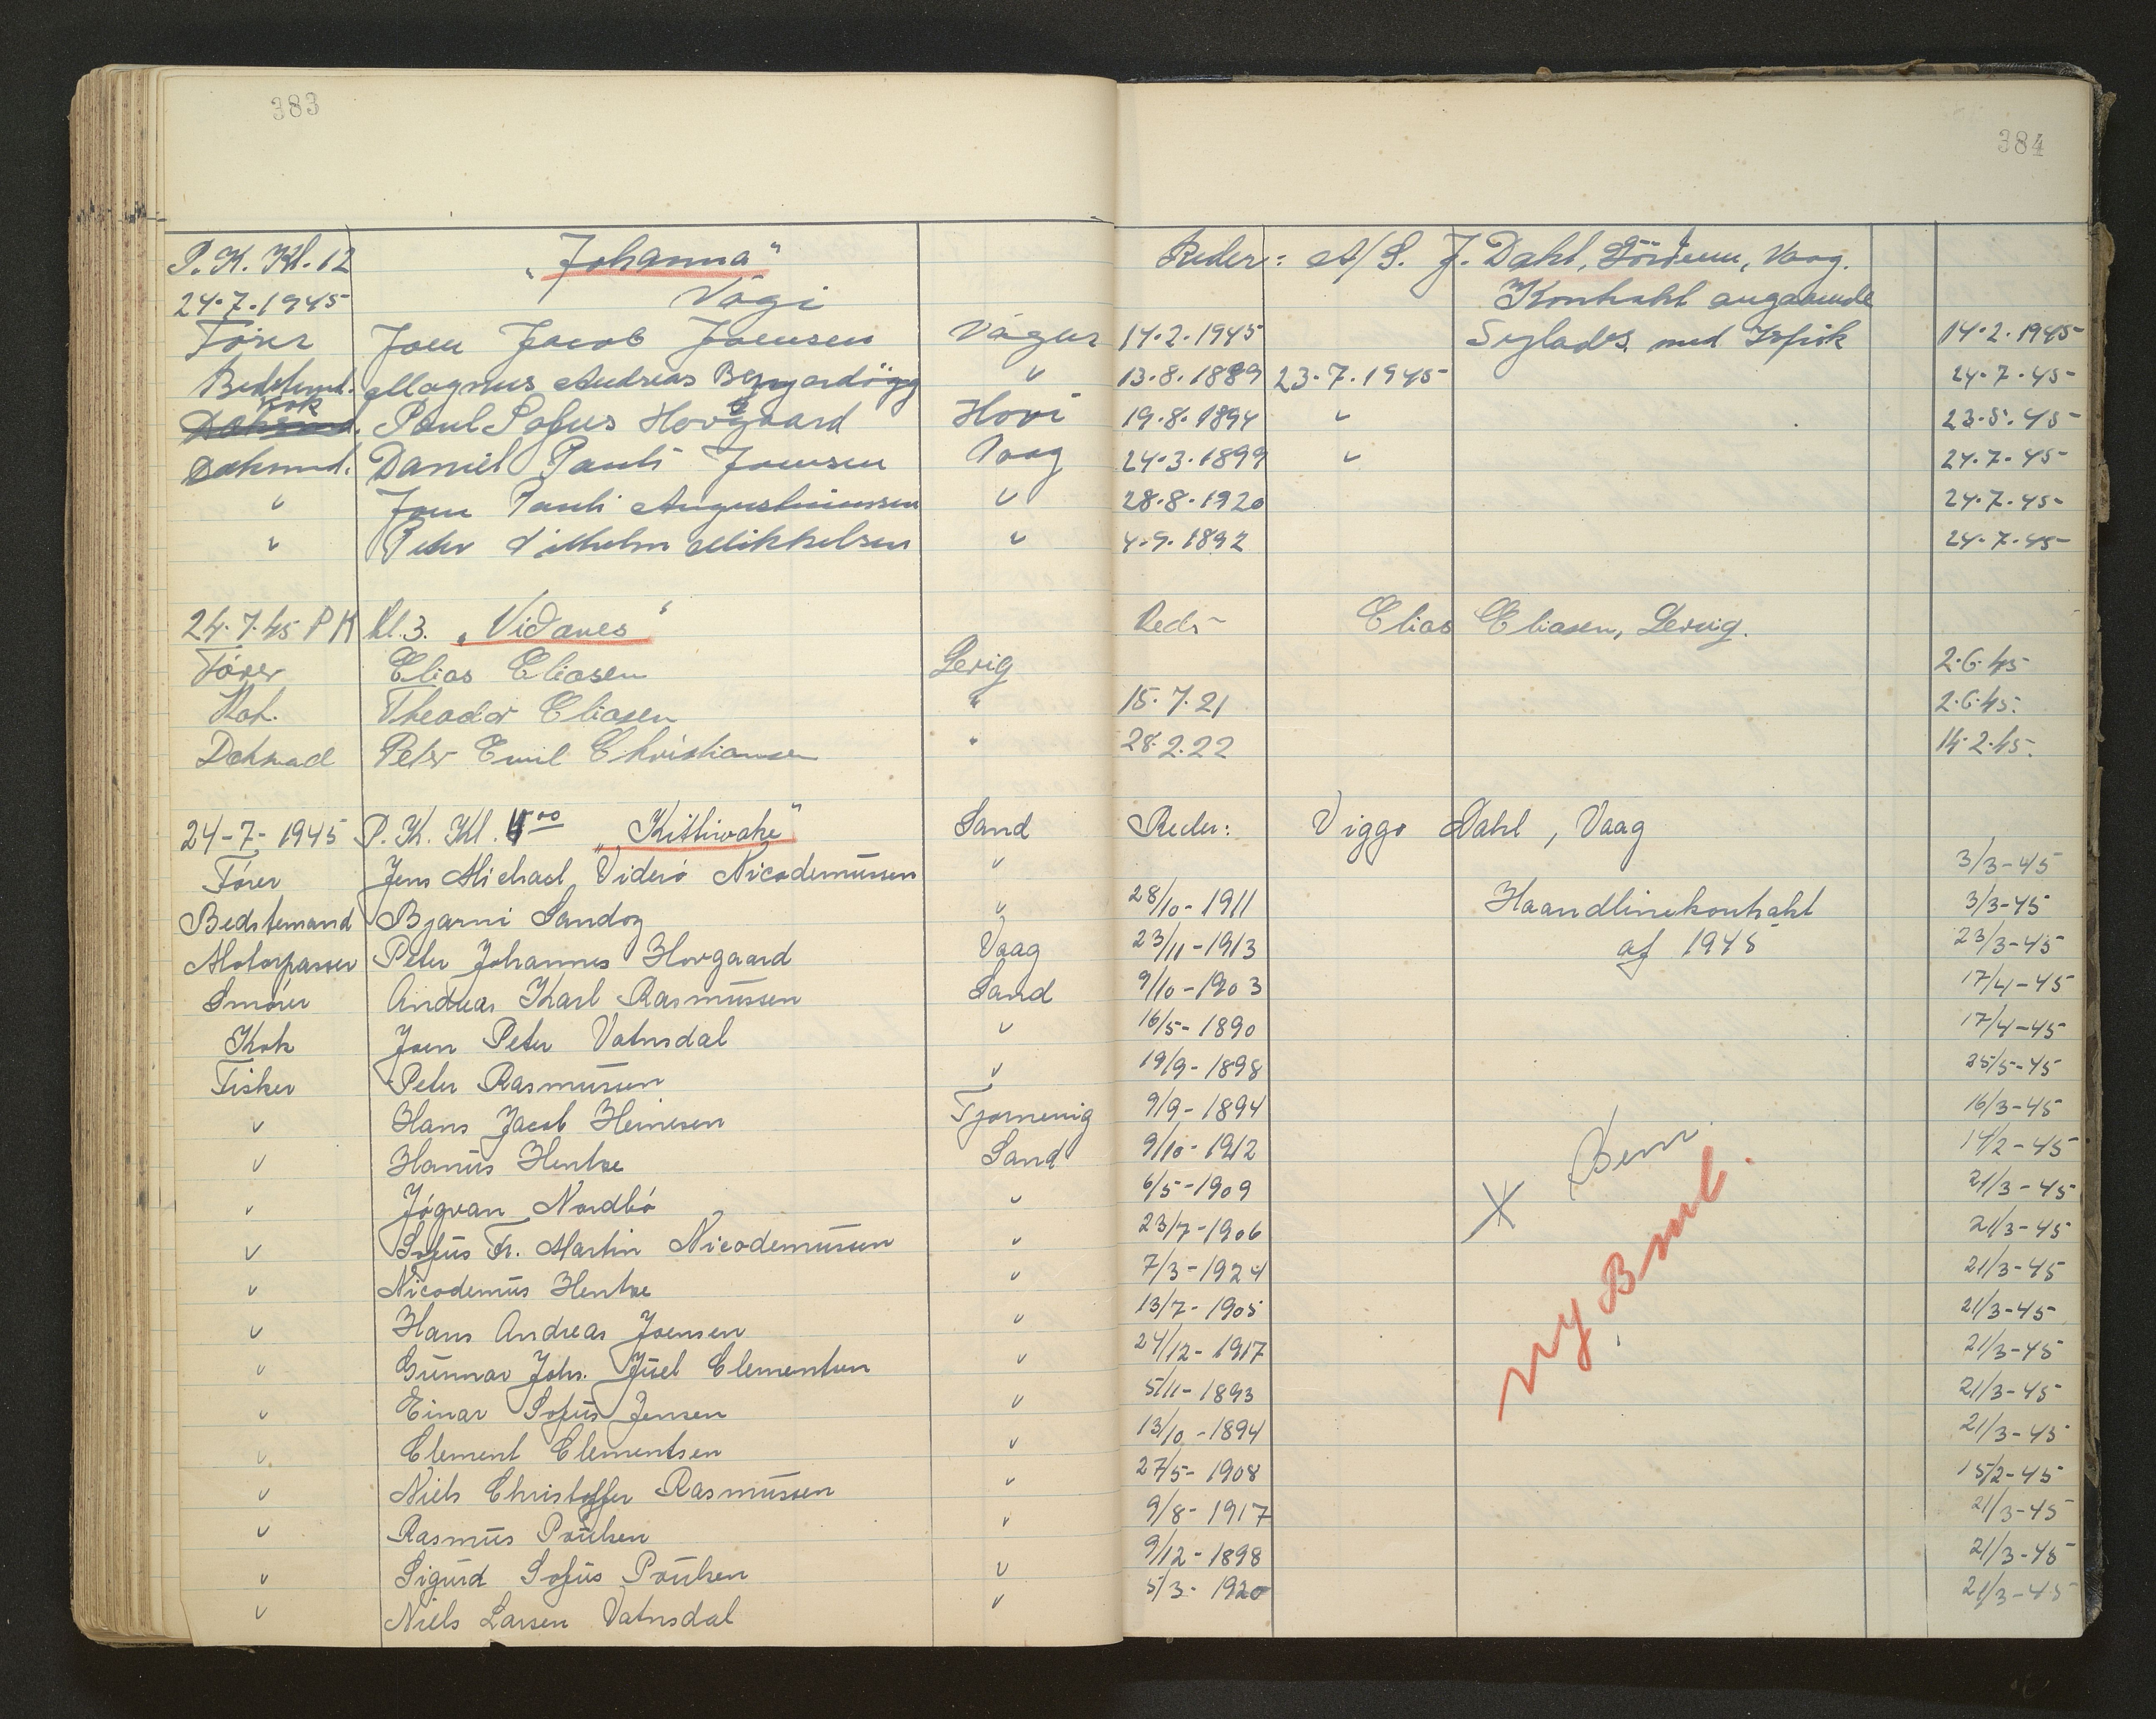 383
384
P. K. Kl. 12 „Johanna" Reder: A/S. J. Dahl, Vaag.
24.7.1945 Vági Kontrakt angaaende
Förer Joen Jacob Joensen Vágur 14.2.1945 Sejlads med Isfisk 14.2.1945
Bedstemd. Magnus Andreas " 13.8.1889 23.7.1945 24.7.45
Kok
Poul Sofus Hovgaard Hovi 19.8.1894 " 23.5.45
Dæksmd. Daniel Pauli Joensen Vaag 24.3.1899 " 24.7.45
" Joen Pauli Augustinussen " 28.8.1920 24.7.45
" Peter Vilhelm Mikkelsen " 4.9.1892 24.7.45
24.7.45 P K Kl. 3. „Vidanes" Reder Elias Eliasen, Lervig.
Förer Elias Eliasen Lervig 2.6.45
Kok. Theodor Eliasen " 15.7.21 2.6.45.
Daksmad Peter Emil Christiansen " 28.2.22 14.2.45.
24-7-1945 P. K. Kl. 4⁰⁰ „Kittiwake" Sand Reder: Viggo Dahl, Vaag
Förer Jens Michael Viderö Nicodemussen " 3/3-45
Bedstemand Bjarni Sandoy " 28/10-1911 Haandlinekontrakt 3/3-45
Motorpasser Peter Johannes Hovgaard Vaag 23/11-1913 af 1945 23/3-45
Smörer Andreas Karl Rasmussen Sand 9/10-1903 17/4-45
Kok Joen Peter Vatnsdal " 16/5-1890 17/4-45
Fisker Peter Rasmussen " 19/9-1898 25/5-45
" Hans Jacob Heinesen Tjørnevig 9/9-1894 16/3-45
" Hanus Hentze Sand 9/10-1912 14/2-45
" Jógvan Nordbó " 6/5-1909 21/3-45
" Sofus Fr. Martin Nicodemussen " 23/7-1906 21/3-45
" Nicodemus Hentze " 7/3-1924 21/3-45
" Hans Andreas Joensen " 13/7-1905 21/3-45
" Gunnar Johs. Juel Clementsen " 24/12-1917 21/3-45
" Einar Sofus Jensen " 5/11-1893 21/3-45
" Clement Clementsen " 13/10-1894 21/3-45
" Niels Christoffer Rasmussen " 27/5-1908 15/2-45
" Rasmus Poulsen " 9/8-1917 21/3-45
" Sigurd Sofus Poulsen " 9/12-1898 21/3-45
" Niels Larsen Vatnsdal " 5/3-1920 21/3-45
X Bem.
Ny Bmt.